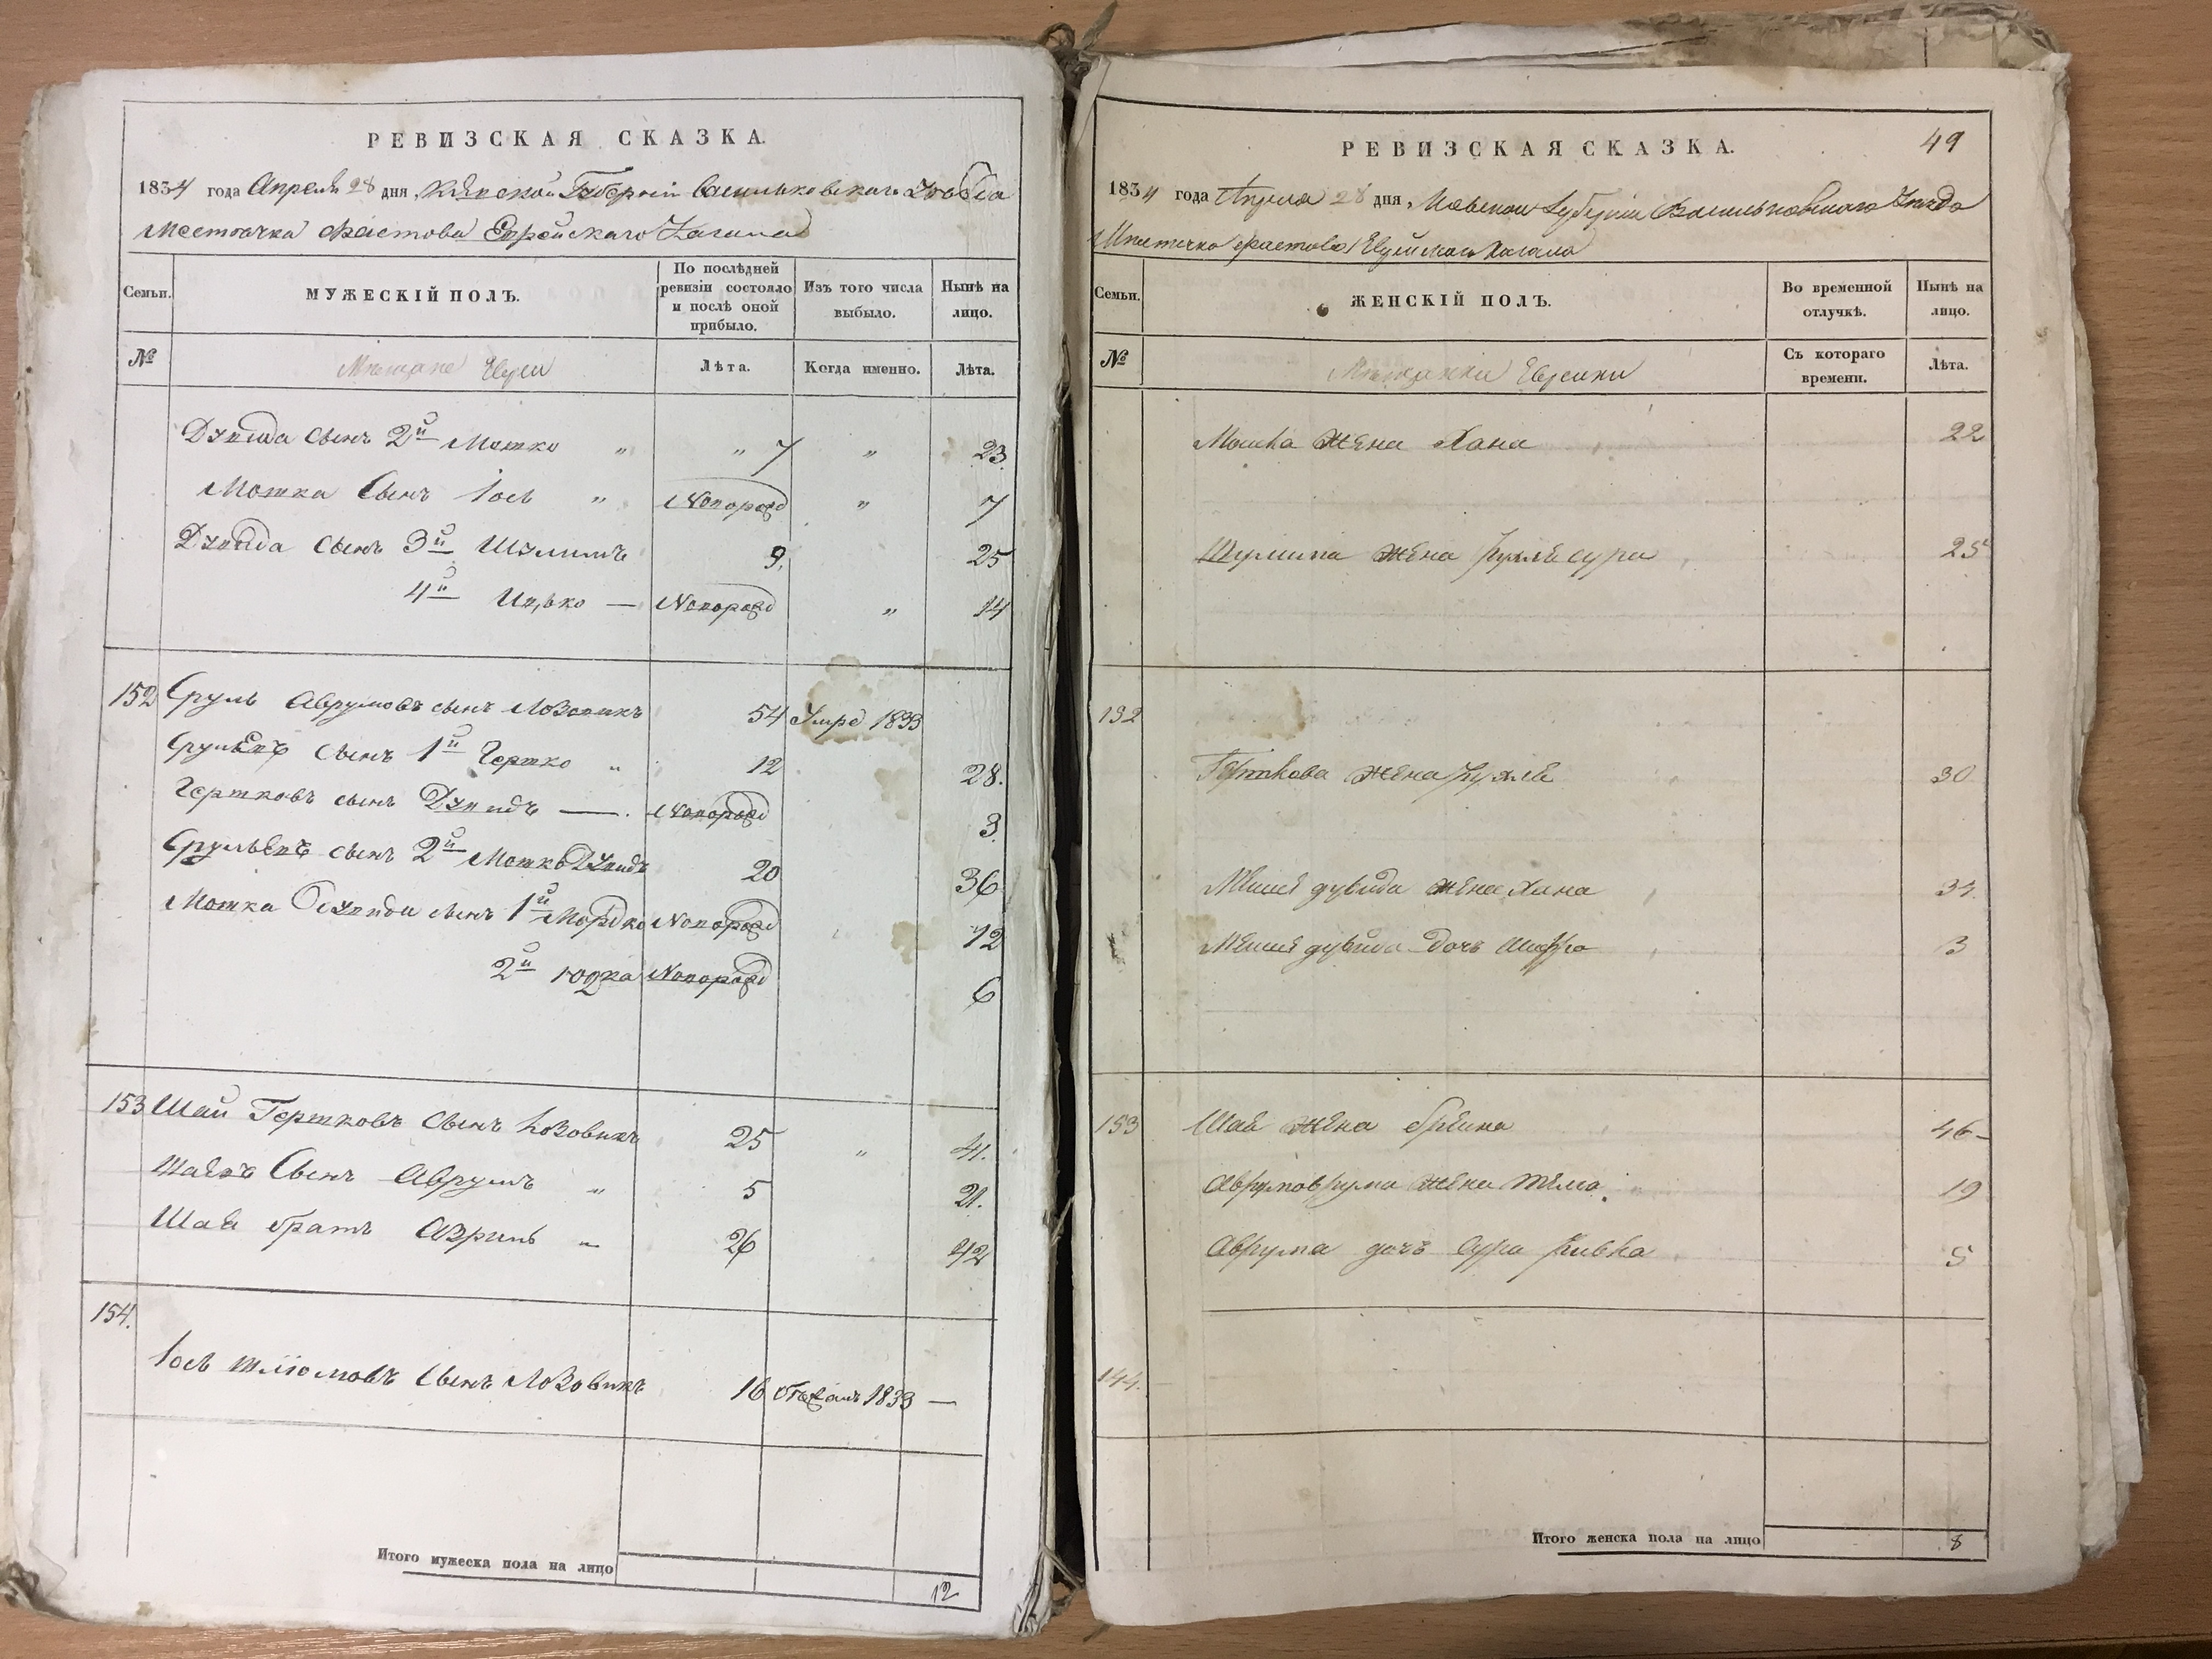 РЕВИЗСКАЯ СКАЗКА.
1834 года Апреля 28 дня, Кіевской Губерніи Васильковскаго Уезда
Местечка Фастова Еврейскаго Кагала
Семьи.
МУЖЕСКІЙ ПОЛЪ.
По послѣдней ревизіи состояло и послѣ оной прибыло.
Изъ того числа выбыло.
Нынѣ на лицо.
№
Мещане Евреи
Лѣта.
Когда именно.
Лѣта.
Дувида сынъ 2й Мошко " " 7 " 23.
Мошка Сынъ Іось " Новорожд " 7
Дувида сынъ 3й Шулимъ 9. 25
4й Ицько — Новорожд " 14
152 Сруль Аврумовъ сынъ Лозовикъ 54 Умре 1833
Срулевъ сынъ 1й Гершко " 12 28.
Гершковъ сынъ Дувидъ —. Новорожд 3
Срулевъ сынъ 2й Мошко Дувидъ 20 36
Мошка Дувида сынъ 1й Мордко Новорожд 12
2й Юдка Новорожд 6
153 Шаи Гершковъ Сынъ Лозовикъ 25 " 41.
Шаевъ Сынъ Аврумъ " 5 21.
Шаи братъ Азриль " 26 42
154.
Іось Шліомовъ Сынъ Лозовикъ 16 1833 —
Итого мужеска пола на лицо
12
РЕВИЗСКАЯ СКАЗКА.
49
1834 года Апреля 28 дня, Кіевской Губерніи Васильковскаго Уезда
Местечка Фастова Еврейскаго Кагала
Семьи.
ЖЕНСКІЙ ПОЛЪ.
Во временной отлучкѣ.
Нынѣ на лицо.
№
Мещанки Еврейки
Съ котораго времени.
Лѣта.
Мошка жена Хана 22
Шулима жена Рухля Сура 25
152
Гершкова жена Рухля 30
Мошка дувида жена Хана 37
Мошка дувида дочь 3
153 Шая жена Брейна 46
жена 19
Аврума дочь Сура Ривка 5
144.
Итого женска пола на лицо
8